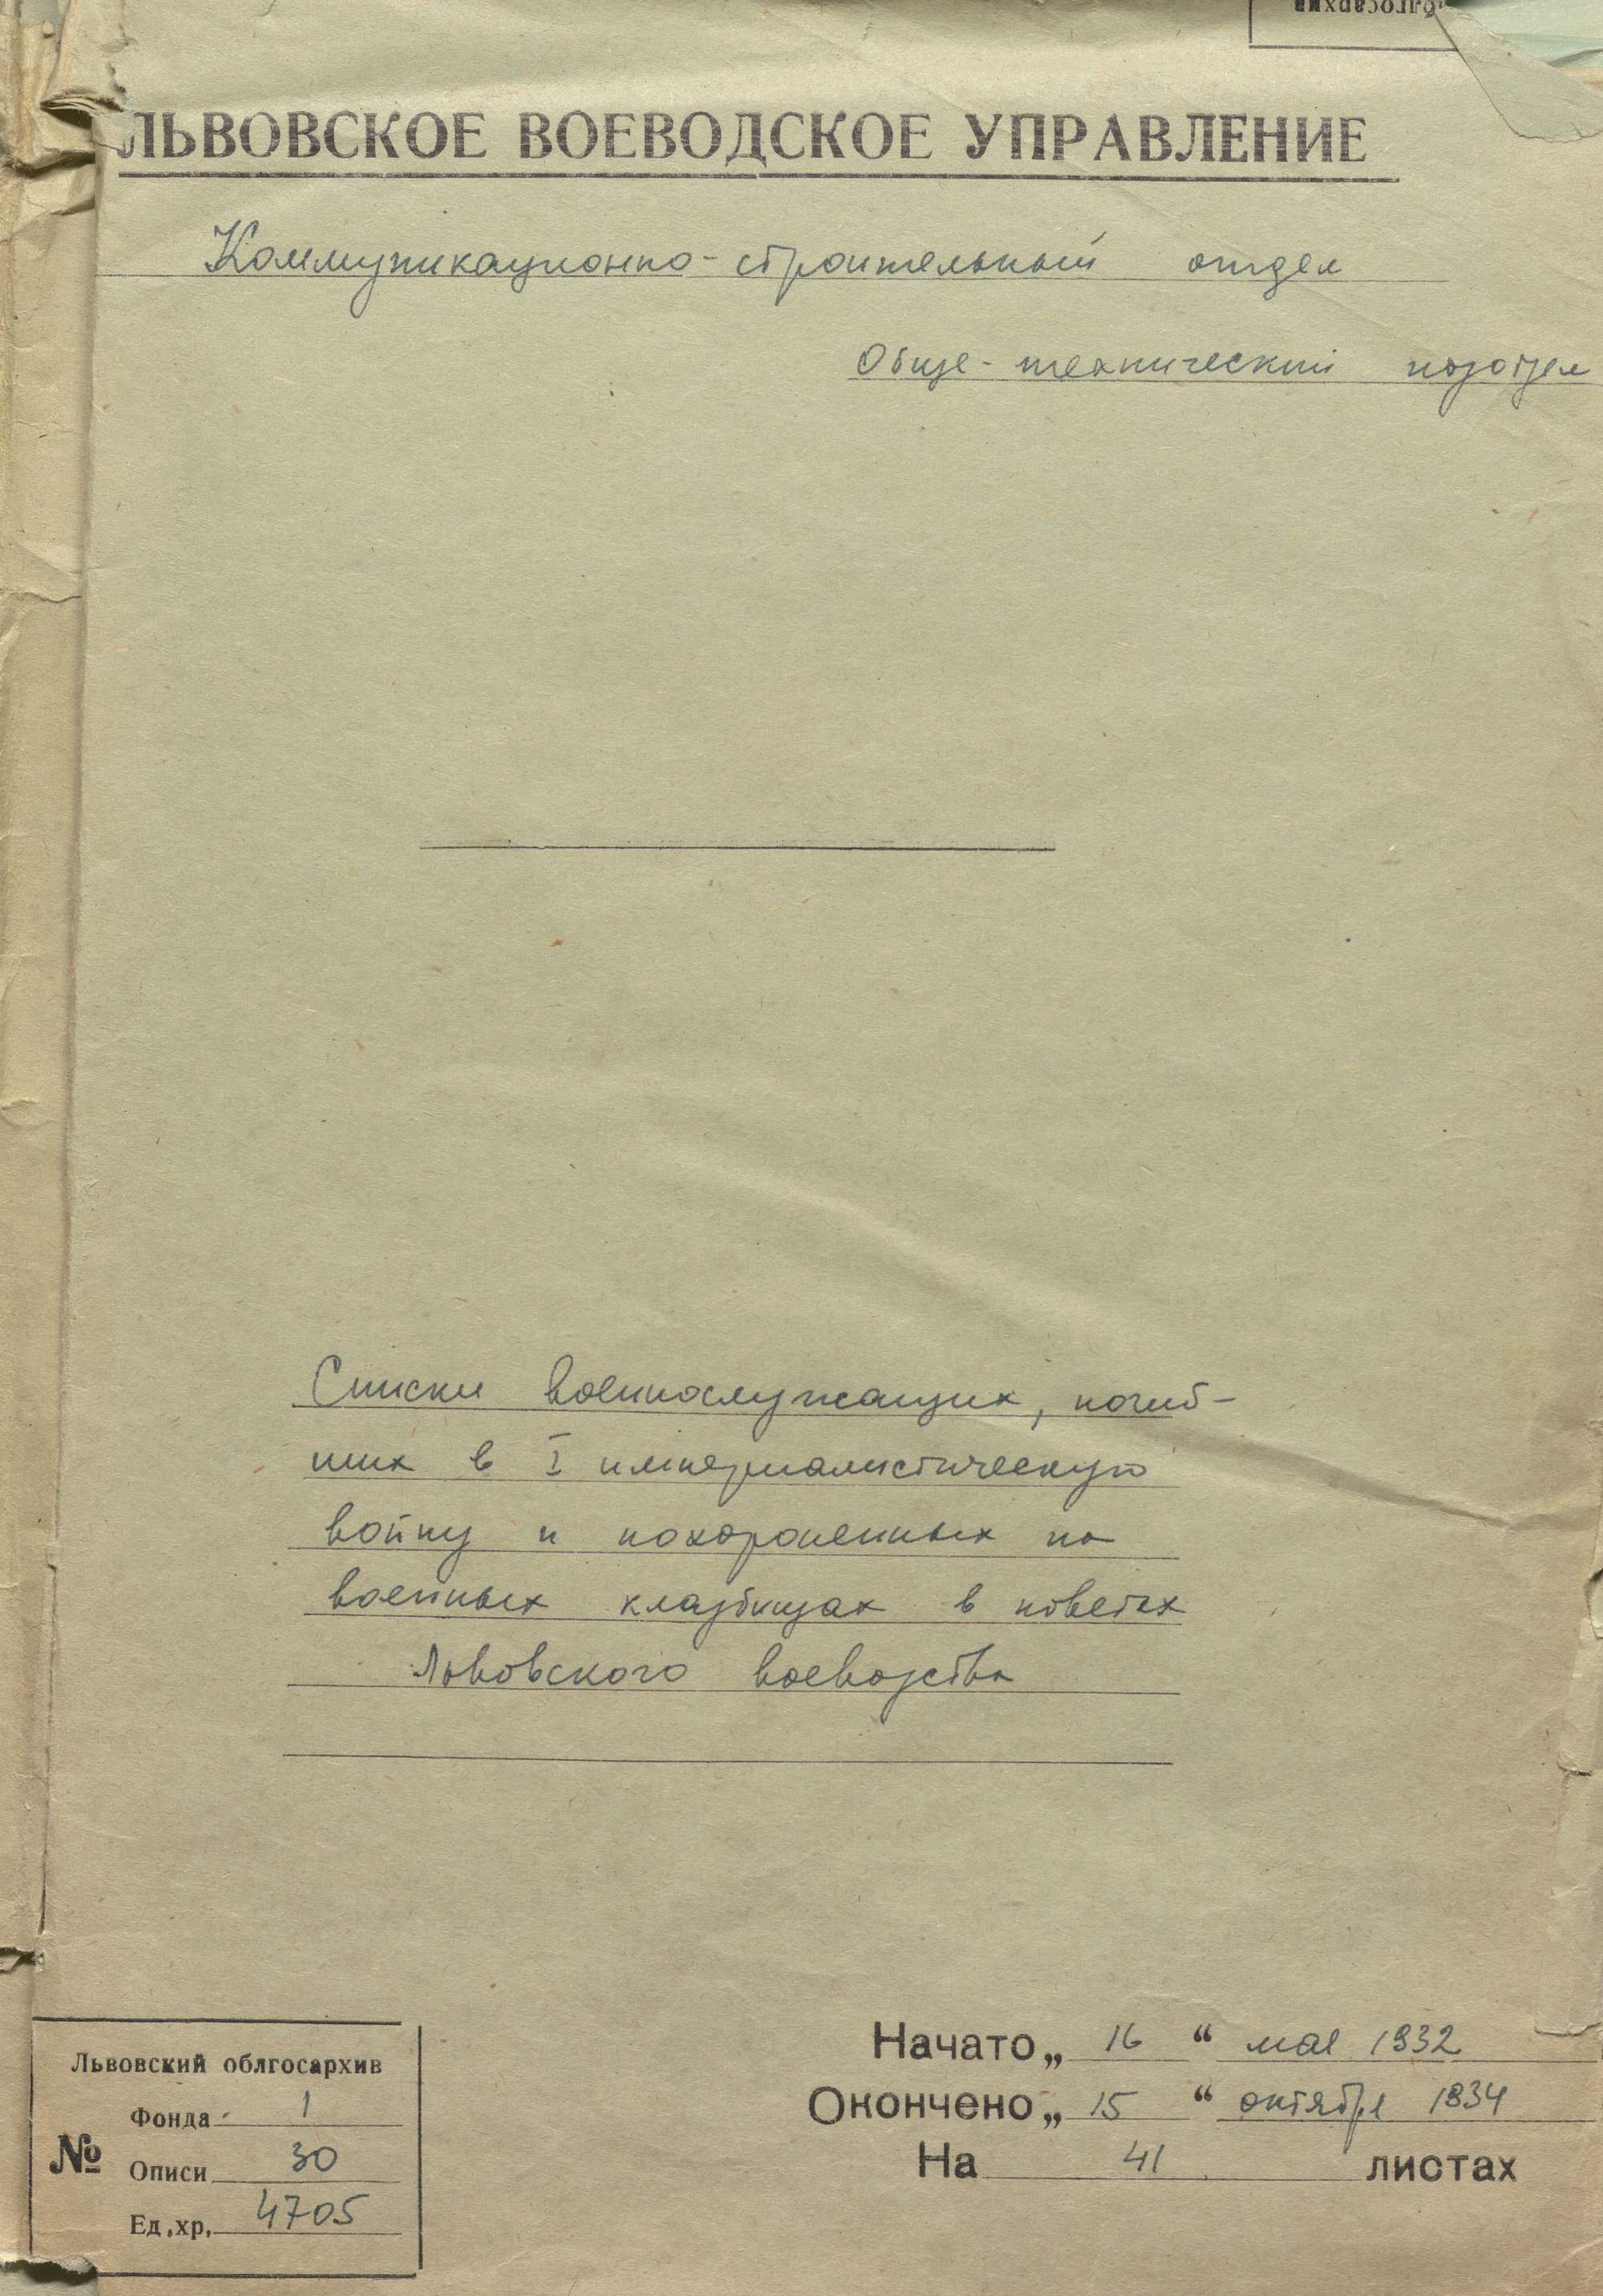 облгосархив
ЛЬВОВСКОЕ ВОЕВОДСКОЕ УПРАВЛЕНИЕ
Коммуникационно-строительный отдел
Обще-технический подотдел
Списки военнослужащих, погиб-
ших в I империалистическую
войну и похороненных на
военных кладбищах в поветах
Львовского воеводства
Львовский облгосархив
№
Фонда 1
Описи 30
Ед.хр. 4705
Начато „ 16 “ мая 1932
Окончено „ 15 “ октября 1934
На 41 листах